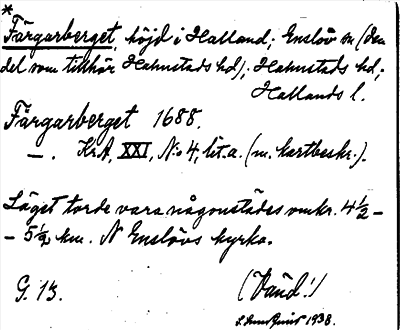 *
Färgarberget, höjd i Halland; Enslöv sn (den
del som tillhör Halmstads hd); Halmstads hd;
Hallands l.
Färgarberget 1688.
—. KrA, XXI, N:o 4, lit. a. (m. kartbeskr.).
Läget torde vara någonstädes omkr. 4½–
– 5½ km. N Enslövs kyrka.
G. 13.
(Vaud!)
1938.